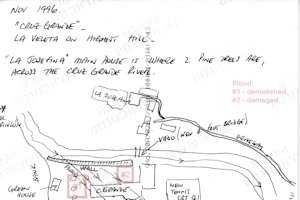 NOV 1996.
"CRUZ GRANDE".
LA VELETA ON HIGHEST HILL.
"LA JOSEFINA" MAIN HOUSE IS WHERE 2 PINE TREES ARE,
ACROSS THE CRUZ GRANDE RIVER.
Flood:
#1 - demolished
#2 - damaged
LA JOSEFINA
VADO (NOW BRIDGE)
DRIVEWAY
WALL
#2
#1
C. GRANDE
GARDEN
HOUSE
NEW
TENNIS
CRT
3